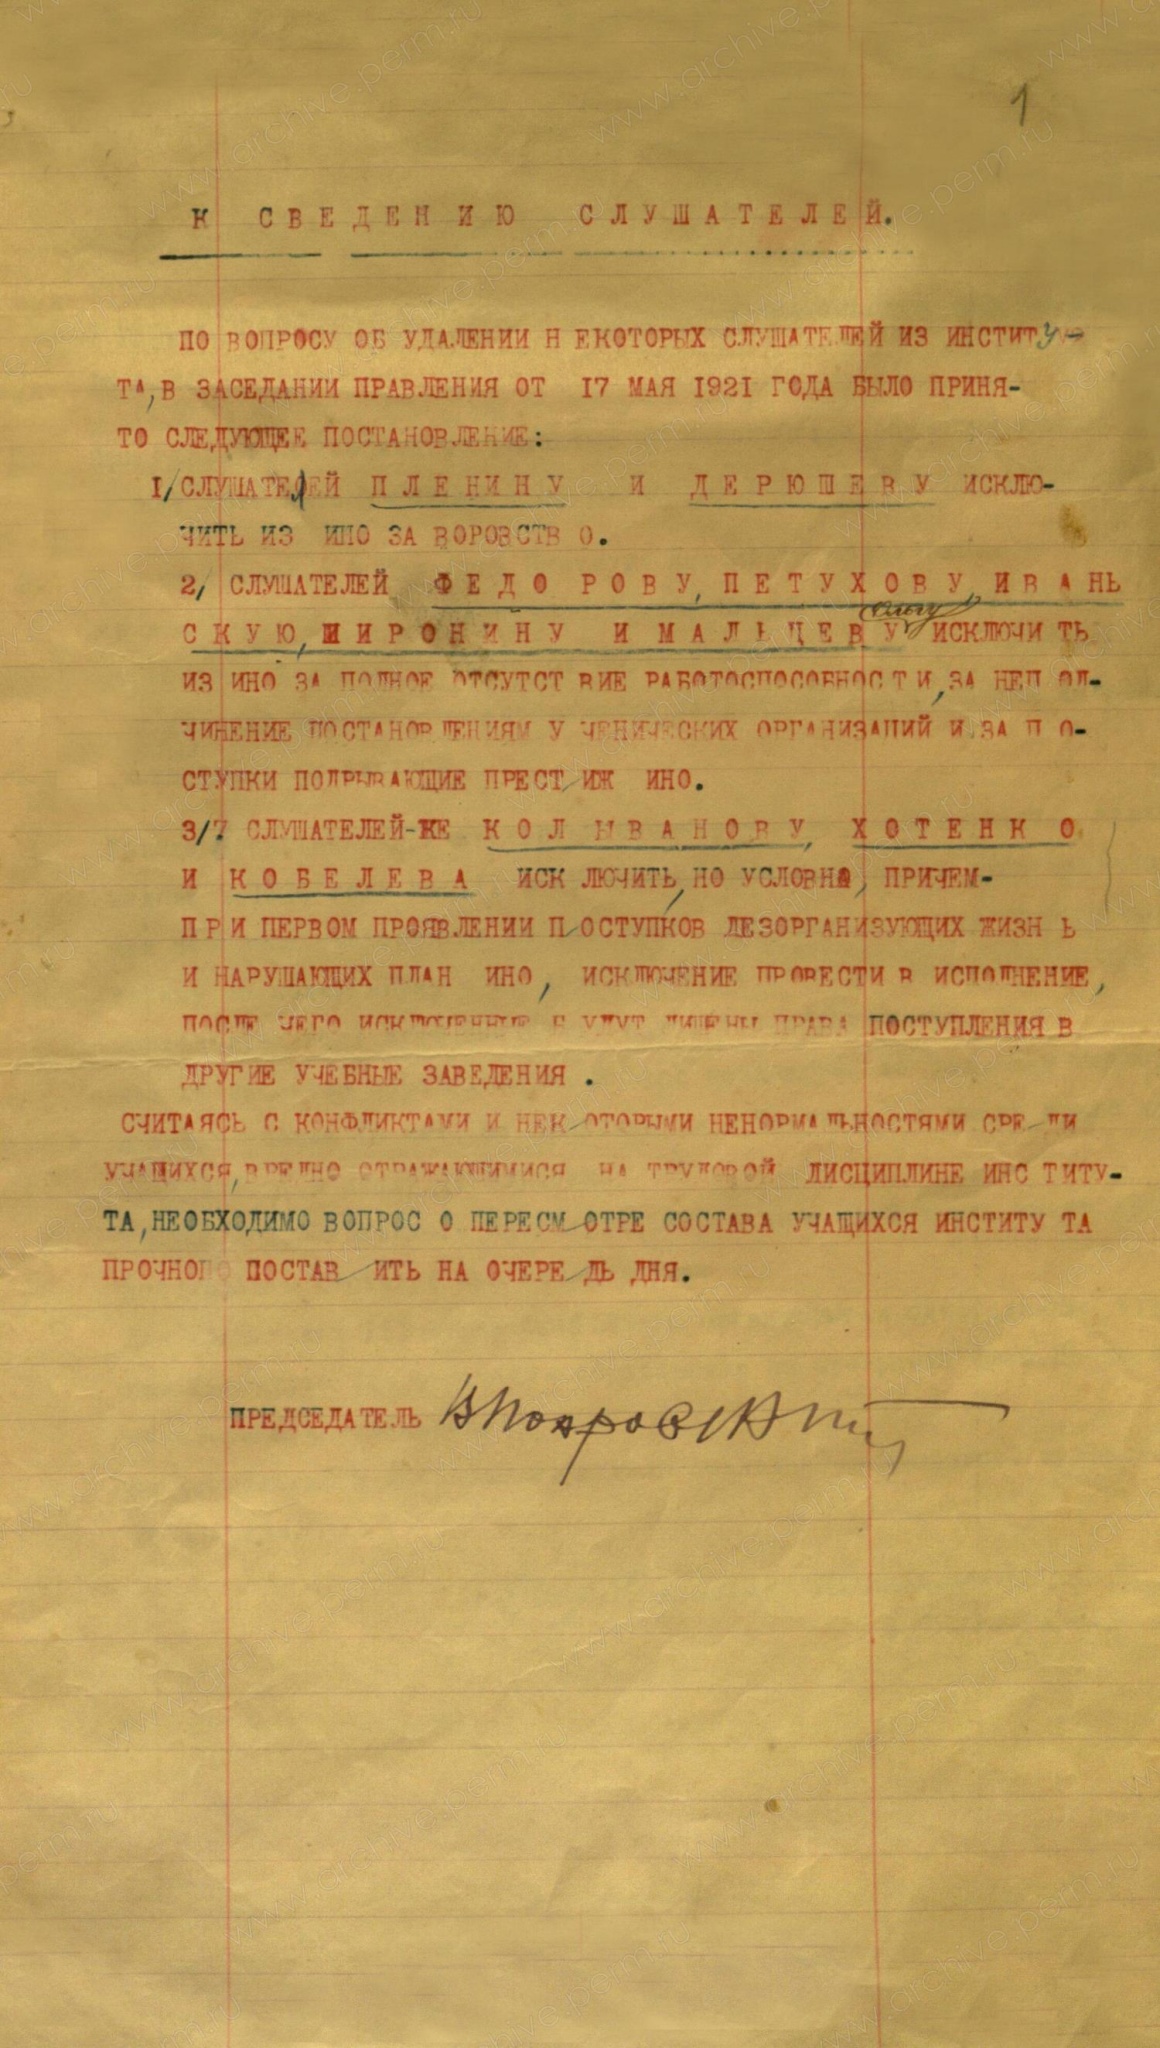 1
К СВЕДЕНИЮ СЛУШАТЕЛЕЙ.
ПО ВОПРОСУ ОБ УДАЛЕНИИ Н ЕКОТОРЫХ СЛУШАТЕЛЕЙ ИЗ ИНСТИТУ-
ТА, В ЗАСЕДАНИИ ПРАВЛЕНИЯ ОТ 17 МАЯ 1921 ГОДА БЫЛО ПРИНЯ-
ТО СЛЕДУЮЩЕЕ ПОСТАНОВЛЕНИЕ:
I/ СЛУШАТЕЛЕЙ ПЛЕНИНУ И ДЕРЮШЕВУ ИСКЛЮ-
ЧИТЬ ИЗ ИНО ЗА ВОРОВСТВ О.
2/ СЛУШАТЕЛЕЙ ФЕДО РОВУ, ПЕТУХОВУ, ИВАНЬ
Ольгу
СКУЮ, ШИРОНИНУ И МАЛЬЦЕВУ ИСКЛЮЧИ ТЬ
ИЗ ИНО ЗА ПОЛНОЕ ОТСУТСТ ВИЕ РАБОТОСПОСОБНОСТИ, ЗА НЕП ОД-
ЧИНЕНИЕ ПОСТАНОВЛЕНИЯМ У ЧЕНИЧЕСКИХ ОРГАНИЗАЦИЙ И ЗА П О-
СТУПКИ ПОДРЫВАЮЩИЕ ПРЕСТ ИЖ ИНО.
3/7 СЛУШАТЕЛЕЙ-ЖЕ КОЛЫВАНОВУ, ХОТЕНКО
И КОБЕЛЕВА ИСК ЛЮЧИТЬ, НО УСЛОВНО, ПРИЧЕМ-
ПРИ ПЕРВОМ ПРОЯВЛЕНИИ П ОСТУПКОВ ДЕЗОРГАНИЗУЮЩИХ ЖИЗН Ь
И НАРУШАЮЩИХ ПЛАН ИНО, ИСКЛЮЧЕНИЕ ПРОВЕСТИ В ИСПОЛНЕНИЕ,
ПОСЛЕ ЧЕГО ИСКЛЮЧЕННЫЕ Б УДУТ ЛИШЕНЫ ПРАВА ПОСТУПЛЕНИЯ В
ДРУГИЕ УЧЕБНЫЕ ЗАВЕДЕНИЯ .
СЧИТАЯСЬ С КОНФЛИКТАМИ И НЕК ОТОРЫМИ НЕНОРМАЛЬНОСТЯМИ СРЕ ДИ
УЧАЩИХСЯ, ВРЕДНО ОТРАЖАЮЩИМИСЯ НА ТРУДОВОЙ ДИСЦИПЛИНЕ ИНС ТИТУ-
ТА, НЕОБХОДИМО ВОПРОС О ПЕРЕСМ ОТРЕ СОСТАВА УЧАЩИХСЯ ИНСТИТУ ТА
ПРОЧНОГО ПОСТАВ ИТЬ НА ОЧЕРЕ ДЬ ДНЯ.
ПРЕДСЕДАТЕЛЬ
www.archive.perm.ru